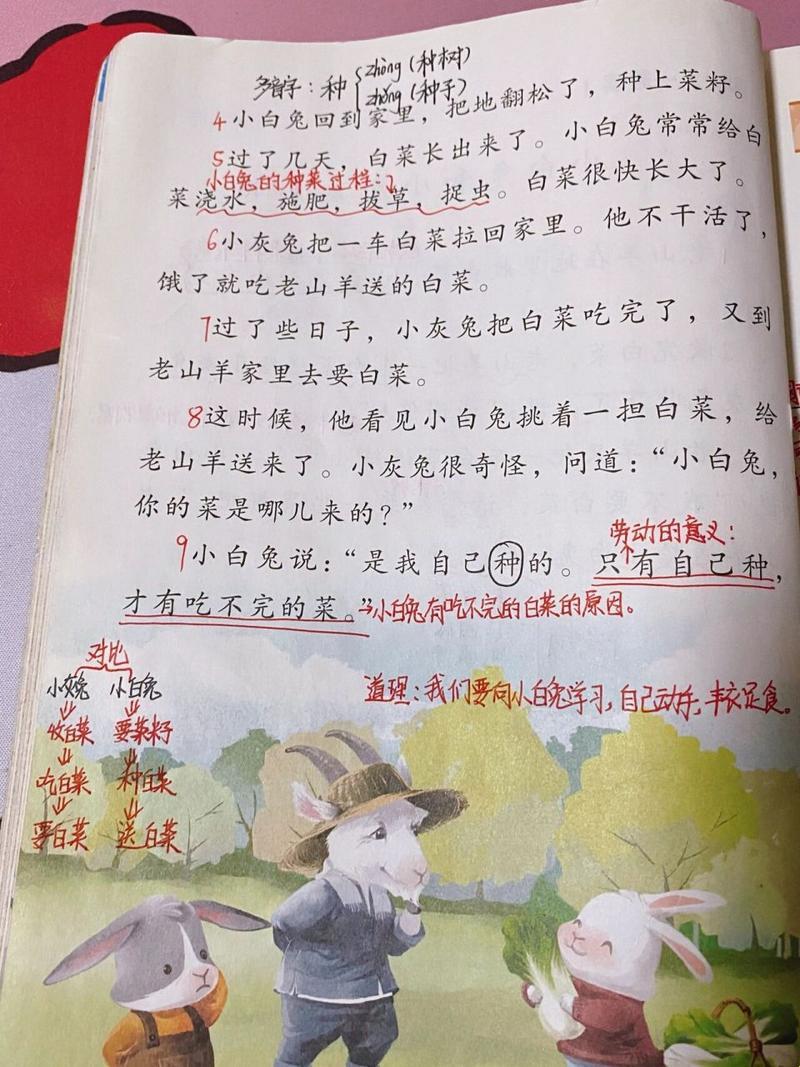 多音字：种 zhòng（种树）
zhǒng（种子）
4 小白兔回到家里，把地翻松了，种上菜籽。
5 过了几天，白菜长出来了。小白兔常常给白
小白兔的种菜过程：
菜浇水，施肥，拔草，捉虫。白菜很快长大了。
6 小灰兔把一车白菜拉回家里。他不干活了，
饿了就吃老山羊送的白菜。
7 过了些日子，小灰兔把白菜吃完了，又到
老山羊家里去要白菜。
8 这时候，他看见小白兔挑着一担白菜，给
老山羊送来了。小灰兔很奇怪，问道：“小白兔，
你的菜是哪儿来的？”
劳动的意义：
9 小白兔说：“是我自己种的。只有自己种，
才有吃不完的菜。”→小白兔有吃不完的白菜的原因。
道理：我们要向小白兔学习，自己动手，丰衣足食。
对比
小灰兔 小白兔
收白菜 要菜籽
吃白菜 种白菜
要白菜 送白菜